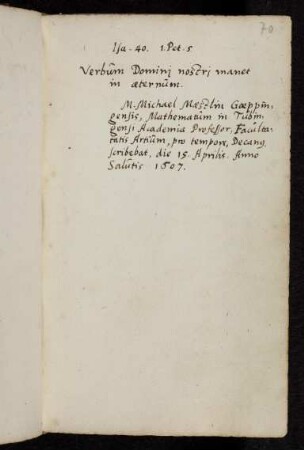 70
Isa. 40. 1. Pet. 1
Verbum Dominj nostrj manet
in æternum.
M. Michael Mæstlin Gœppin„
gensis, Mathematum in Tubin„
gensi Academia Professor, Facul„
tatis Artium, pro tempore, Decanus
scribebat, die 15 Aprilis. Anno
Salutis 1607.